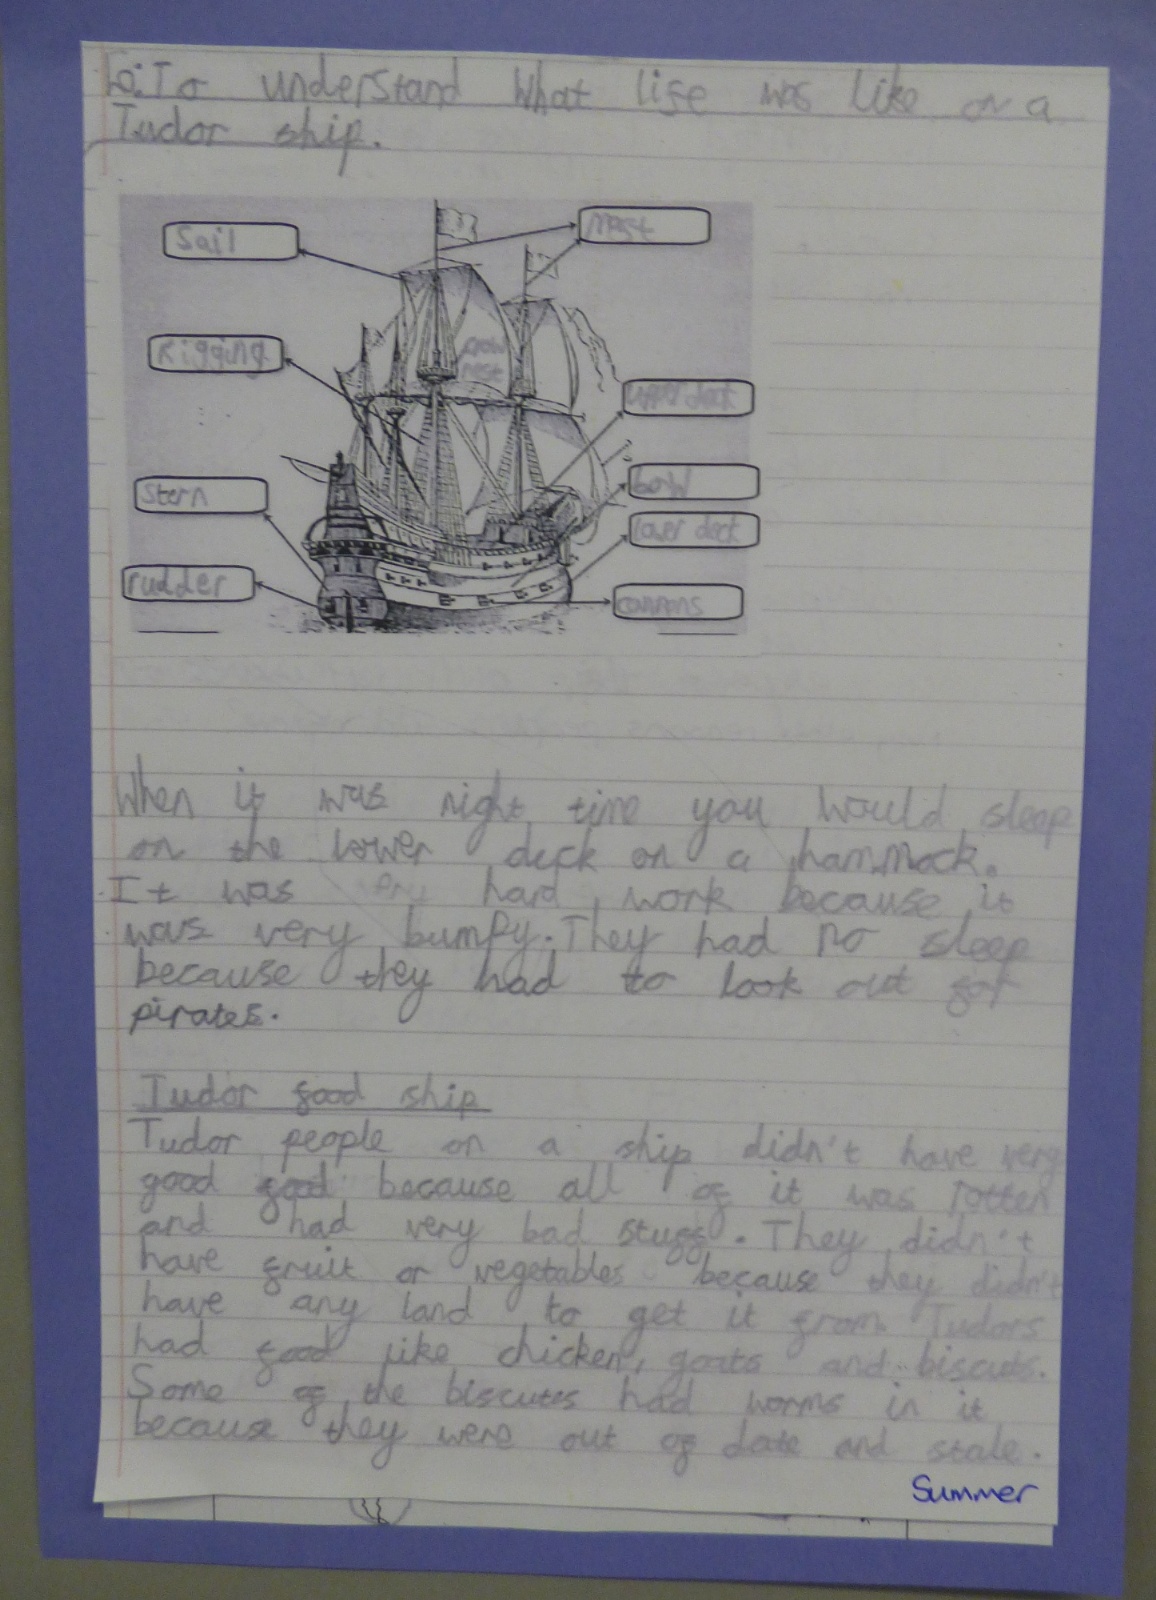 L.o: To understand What life was like on a
Tudor ship.
Sail
Mast
Rigging
crow
nest
upper deck
stern
bow
lower deck
rudder
cannons
When it was night time you would sleep
on the lower deck on a hammock.
It was hard work because it
was very bumpy. They had no sleep
because they had to look out for
pirates.
Tudor food ship
Tudor people on a ship didn't have very
good food because all of it was rotten
and had very bad stuff. They didn't
have fruit or vegetables because they didn't
have any land to get it from. Tudors
had food like chicken, goats and biscuts.
Some of the biscutes had worms in it
because they were out of date and stale.
Summer